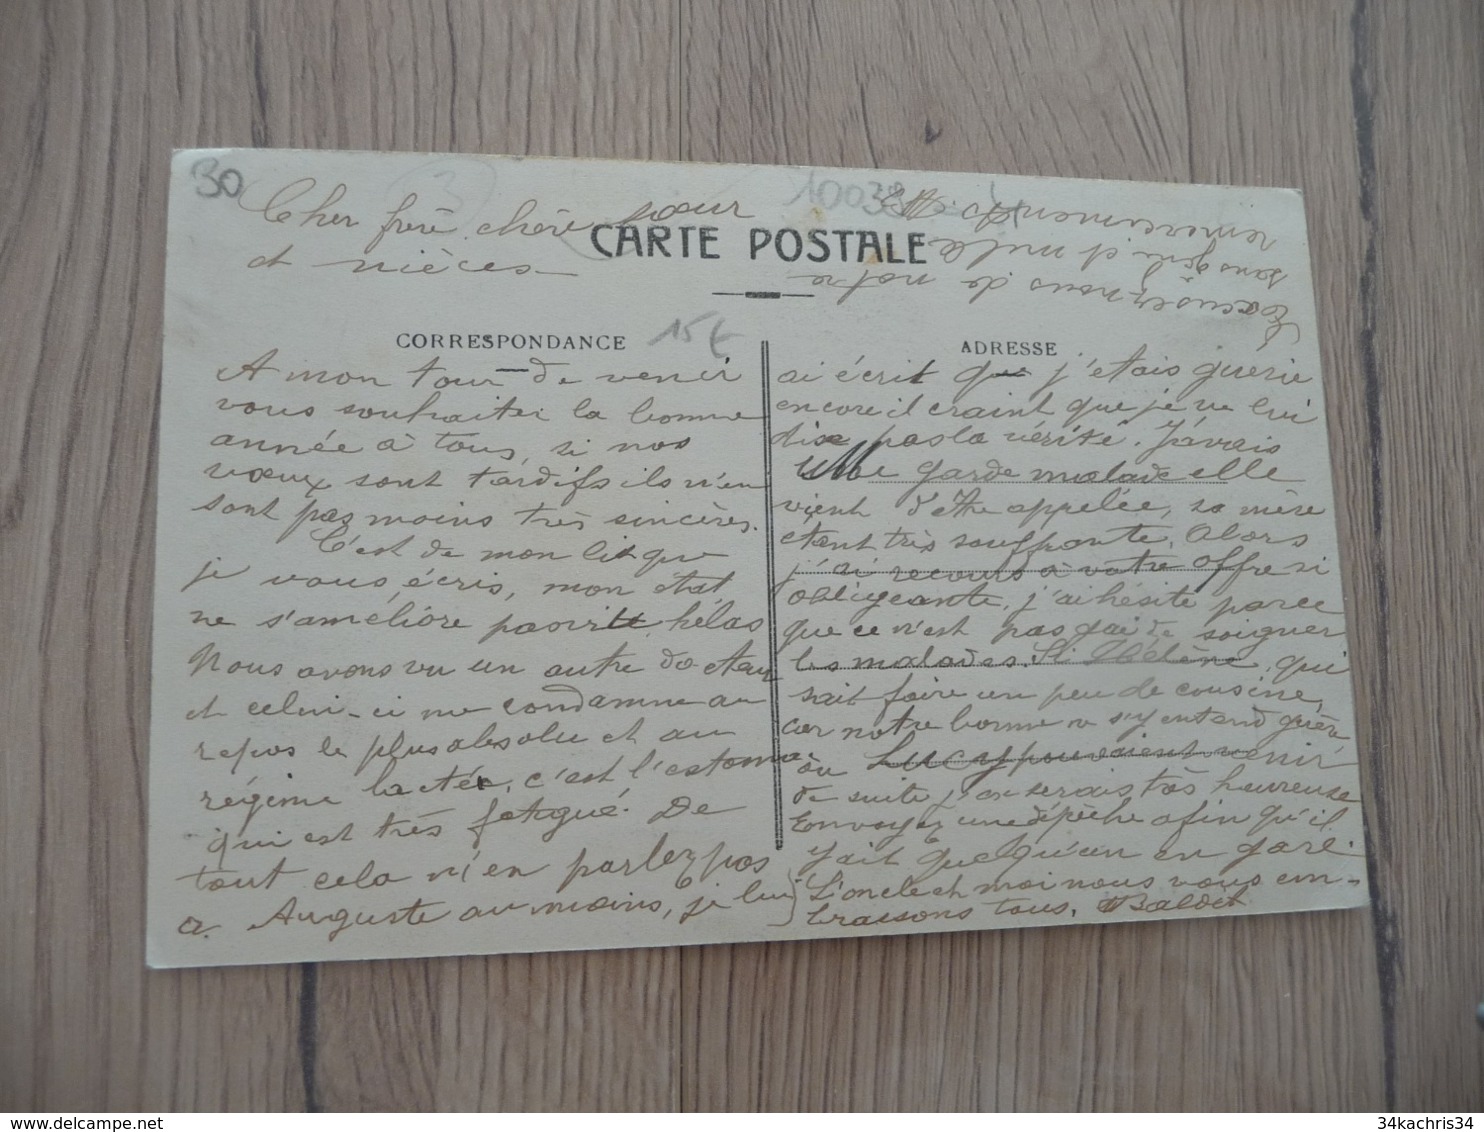 30
3
10038
Cher frère, chère sœur
et nièces
CARTE POSTALE
CORRESPONDANCE
15€
A mon tour de venir
vous souhaiter la bonne
année à tous, si nos
vœux sont tardifs ils n'en
sont pas moins très sincères.
C'est de mon lit que
je vous écris, mon état
ne s'améliore pas vite, hélas
Nous avons vu un autre docteur
et celui-ci me condamne au
repos le plus absolu et au
régime lacté, c'est l'estomac
qui est très fatigué. De
tout cela n'en parlez pas
à Auguste au moins, je lui
ADRESSE
ai écrit que j'étais guérie
encore il craint que je ne lui
dise pas la vérité. J'avais
une garde malade elle
vient d'être appelée, sa mère
étant très souffrante. Alors
j'ai recours à votre offre si
obligeante, j'ai hésité parce
que ce n'est pas gai de soigner
les malades. Si Hélène, qui
sait faire un peu de cuisine,
car notre bonne ne s'y entend guère
ou Lucy pouvaient venir
de suite j'en serais très heureuse
Envoyez une dépêche afin qu'il
y ait quelqu'un en gare.
L'oncle et moi nous vous em-
brassons tous. Baldet
Excusez nous de notre
sans gêne et mille
remerciements
34kachris34